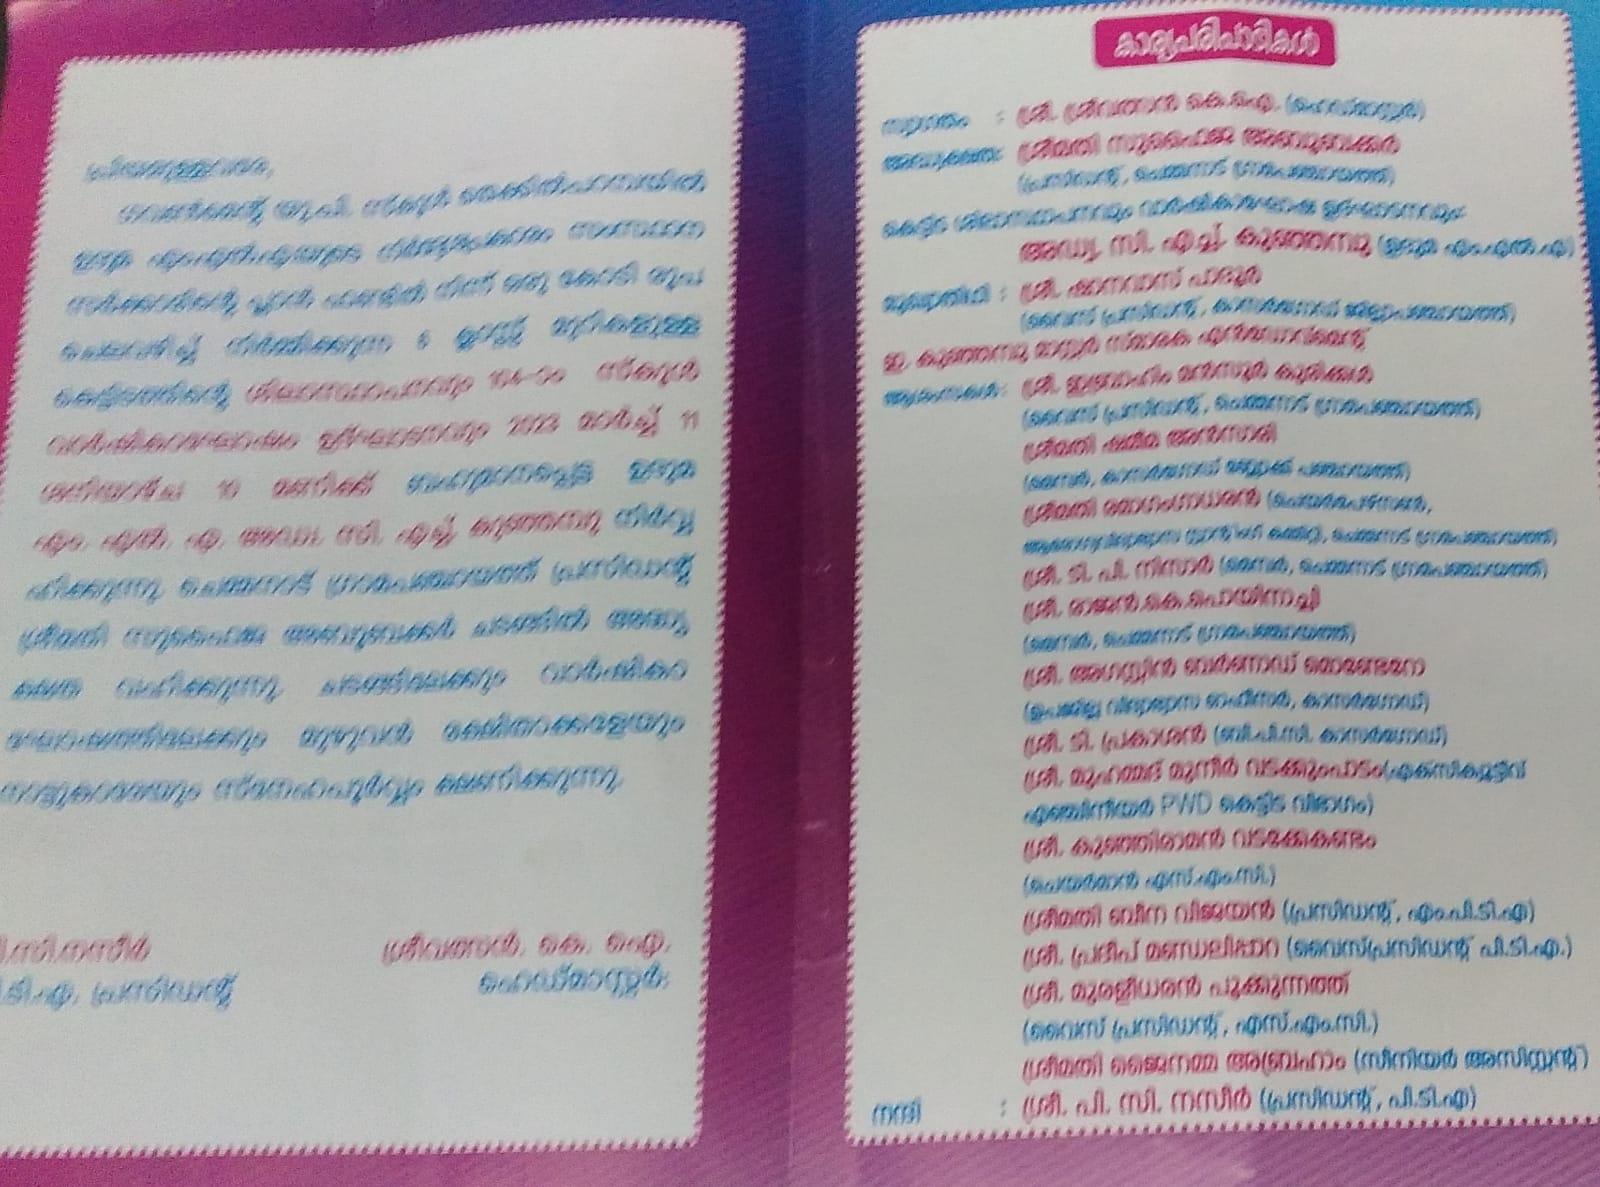 പ്രിയമുള്ളവരെ,
ഗവൺമെന്റ് യു.പി. സ്കൂൾ തെക്കിൽപറമ്പയിൽ
ഉദുമ എംഎൽഎയുടെ നിർദ്ദേശപ്രകാരം സംസ്ഥാന
സർക്കാരിന്റെ പ്ലാൻ ഫണ്ടിൽ നിന്ന് ഒരു കോടി രൂപ
ചെലവഴിച്ച് നിർമ്മിക്കുന്ന ക്ലാസ്സ് മുറികളുള്ള
കെട്ടിടത്തിന്റെ ശിലാസ്ഥാപനവും 104-ാം സ്കൂൾ
വാർഷികാഘോഷം ഉദ്ഘാടനവും 2023 മാർച്ച് 11
ശനിയാഴ്ച 10 മണിക്ക് ബഹുമാനപ്പെട്ട ഉദുമ
എം. എൽ. എ. അഡ്വ. സി. എച്ച് കുഞ്ഞമ്പു നിർവ്വ
ഹിക്കുന്നു. ചെമ്മനാട് ഗ്രാമപഞ്ചായത്ത് പ്രസിഡന്റ്
ശ്രീമതി സുഫൈജ അബൂബക്കർ ചടങ്ങിൽ അദ്ധ്യ
ക്ഷത വഹിക്കുന്നു. ചടങ്ങിലേക്കും വാർഷികാ
ഘോഷത്തിലേക്കും മുഴുവൻ രക്ഷിതാക്കളെയും
നാട്ടുകാരെയും സ്നേഹപൂർവ്വം ക്ഷണിക്കുന്നു.
പി.സി.നസീർ
പി.ടി.എ. പ്രസിഡന്റ്
ശ്രീവത്സൻ. കെ. ഐ.
ഹെഡ്മാസ്റ്റർ.
കാര്യപരിപാടികൾ
സ്വാഗതം : ശ്രീ. ശ്രീവത്സൻ കെ.ഐ. (ഹെഡ്മാസ്റ്റർ)
അദ്ധ്യക്ഷത: ശ്രീമതി സുഫൈജ അബൂബക്കർ
(പ്രസിഡന്റ്, ചെമ്മനാട് ഗ്രാമപഞ്ചായത്ത്)
കെട്ടിട ശിലാസ്ഥാപനവും വാർഷികാഘോഷ ഉദ്ഘാടനവും:
അഡ്വ. സി. എച്ച്. കുഞ്ഞമ്പു (ഉദുമ എംഎൽഎ)
മുഖ്യാതിഥി : ശ്രീ. ഷാനവാസ് പാദൂർ
(വൈസ് പ്രസിഡന്റ്, കാസർഗോഡ് ജില്ലാപഞ്ചായത്ത്)
ഇ. കുഞ്ഞമ്പു മാസ്റ്റർ സ്മാരക എൻഡോവ്മെന്റ്
ആശംസകൾ: ശ്രീ. ഇബ്രാഹിം മൻസൂർ കുരിക്കൾ
(വൈസ് പ്രസിഡന്റ്, ചെമ്മനാട് ഗ്രാമപഞ്ചായത്ത്)
ശ്രീമതി ഷമീമ അൻസാരി
(മെമ്പർ, കാസർഗോഡ് ബ്ലോക്ക് പഞ്ചായത്ത്)
ശ്രീമതി രമാഗംഗാധരൻ (ചെയർപേഴ്സൺ,
ആരോഗ്യവിദ്യാഭ്യാസ സ്റ്റാന്റിംഗ് കമ്മിറ്റി, ചെമ്മനാട് ഗ്രാമപഞ്ചായത്ത്)
ശ്രീ. ടി. പി. നിസാർ (മെമ്പർ, ചെമ്മനാട് ഗ്രാമപഞ്ചായത്ത്)
ശ്രീ. രാജൻ.കെ.പൊയിനാച്ചി
(മെമ്പർ, ചെമ്മനാട് ഗ്രാമപഞ്ചായത്ത്)
ശ്രീ. അഗസ്റ്റിൻ ബർണാഡ് മൊണ്ടെറോ
(ഉപജില്ല വിദ്യാഭ്യാസ ഓഫീസർ, കാസർഗോഡ്)
ശ്രീ. ടി. പ്രകാശൻ (ബി.പി.സി. കാസർഗോഡ്)
ശ്രീ. മുഹമ്മദ് മുനീർ വടക്കുംപാടം(എക്സിക്യൂട്ടീവ്
എഞ്ചിനീയർ PWD കെട്ടിട വിഭാഗം)
ശ്രീ. കുഞ്ഞിരാമൻ വടക്കേകണ്ടം
(ചെയർമാൻ എസ്.എം.സി.)
ശ്രീമതി ബീന വിജയൻ (പ്രസിഡന്റ്, എം.പി.ടി.എ)
ശ്രീ. പ്രദീപ് മണ്ഡലിപ്പാറ (വൈസ്പ്രസിഡന്റ് പി.ടി.എ.)
ശ്രീ. മുരളീധരൻ പൂക്കുന്നത്ത്
(വൈസ് പ്രസിഡന്റ്, എസ്.എം.സി.)
ശ്രീമതി ജൈനമ്മ അബ്രഹാം (സീനിയർ അസിസ്റ്റന്റ്)
നന്ദി : ശ്രീ. പി. സി. നസീർ (പ്രസിഡന്റ്, പി.ടി.എ)